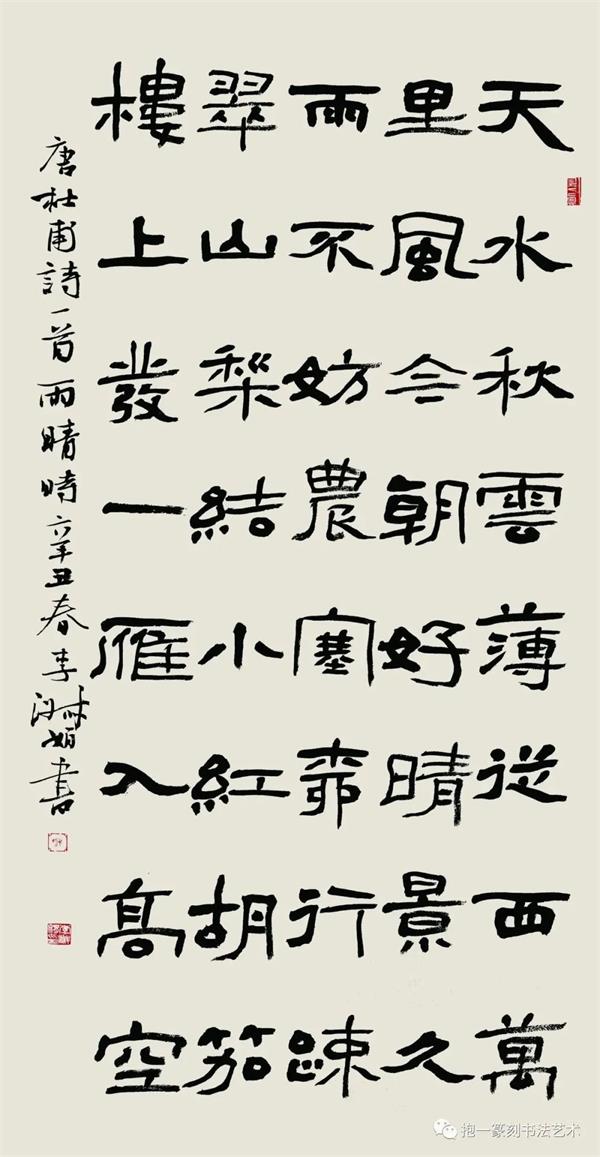 天水秋雲薄從西萬
里風今朝好晴景久
雨不妨農塞桺行踈
翠山梨結小紅胡笳
樓上發一雁入高空
唐杜甫詩一首雨晴時辛丑春李書
抱一篆刻书法艺术